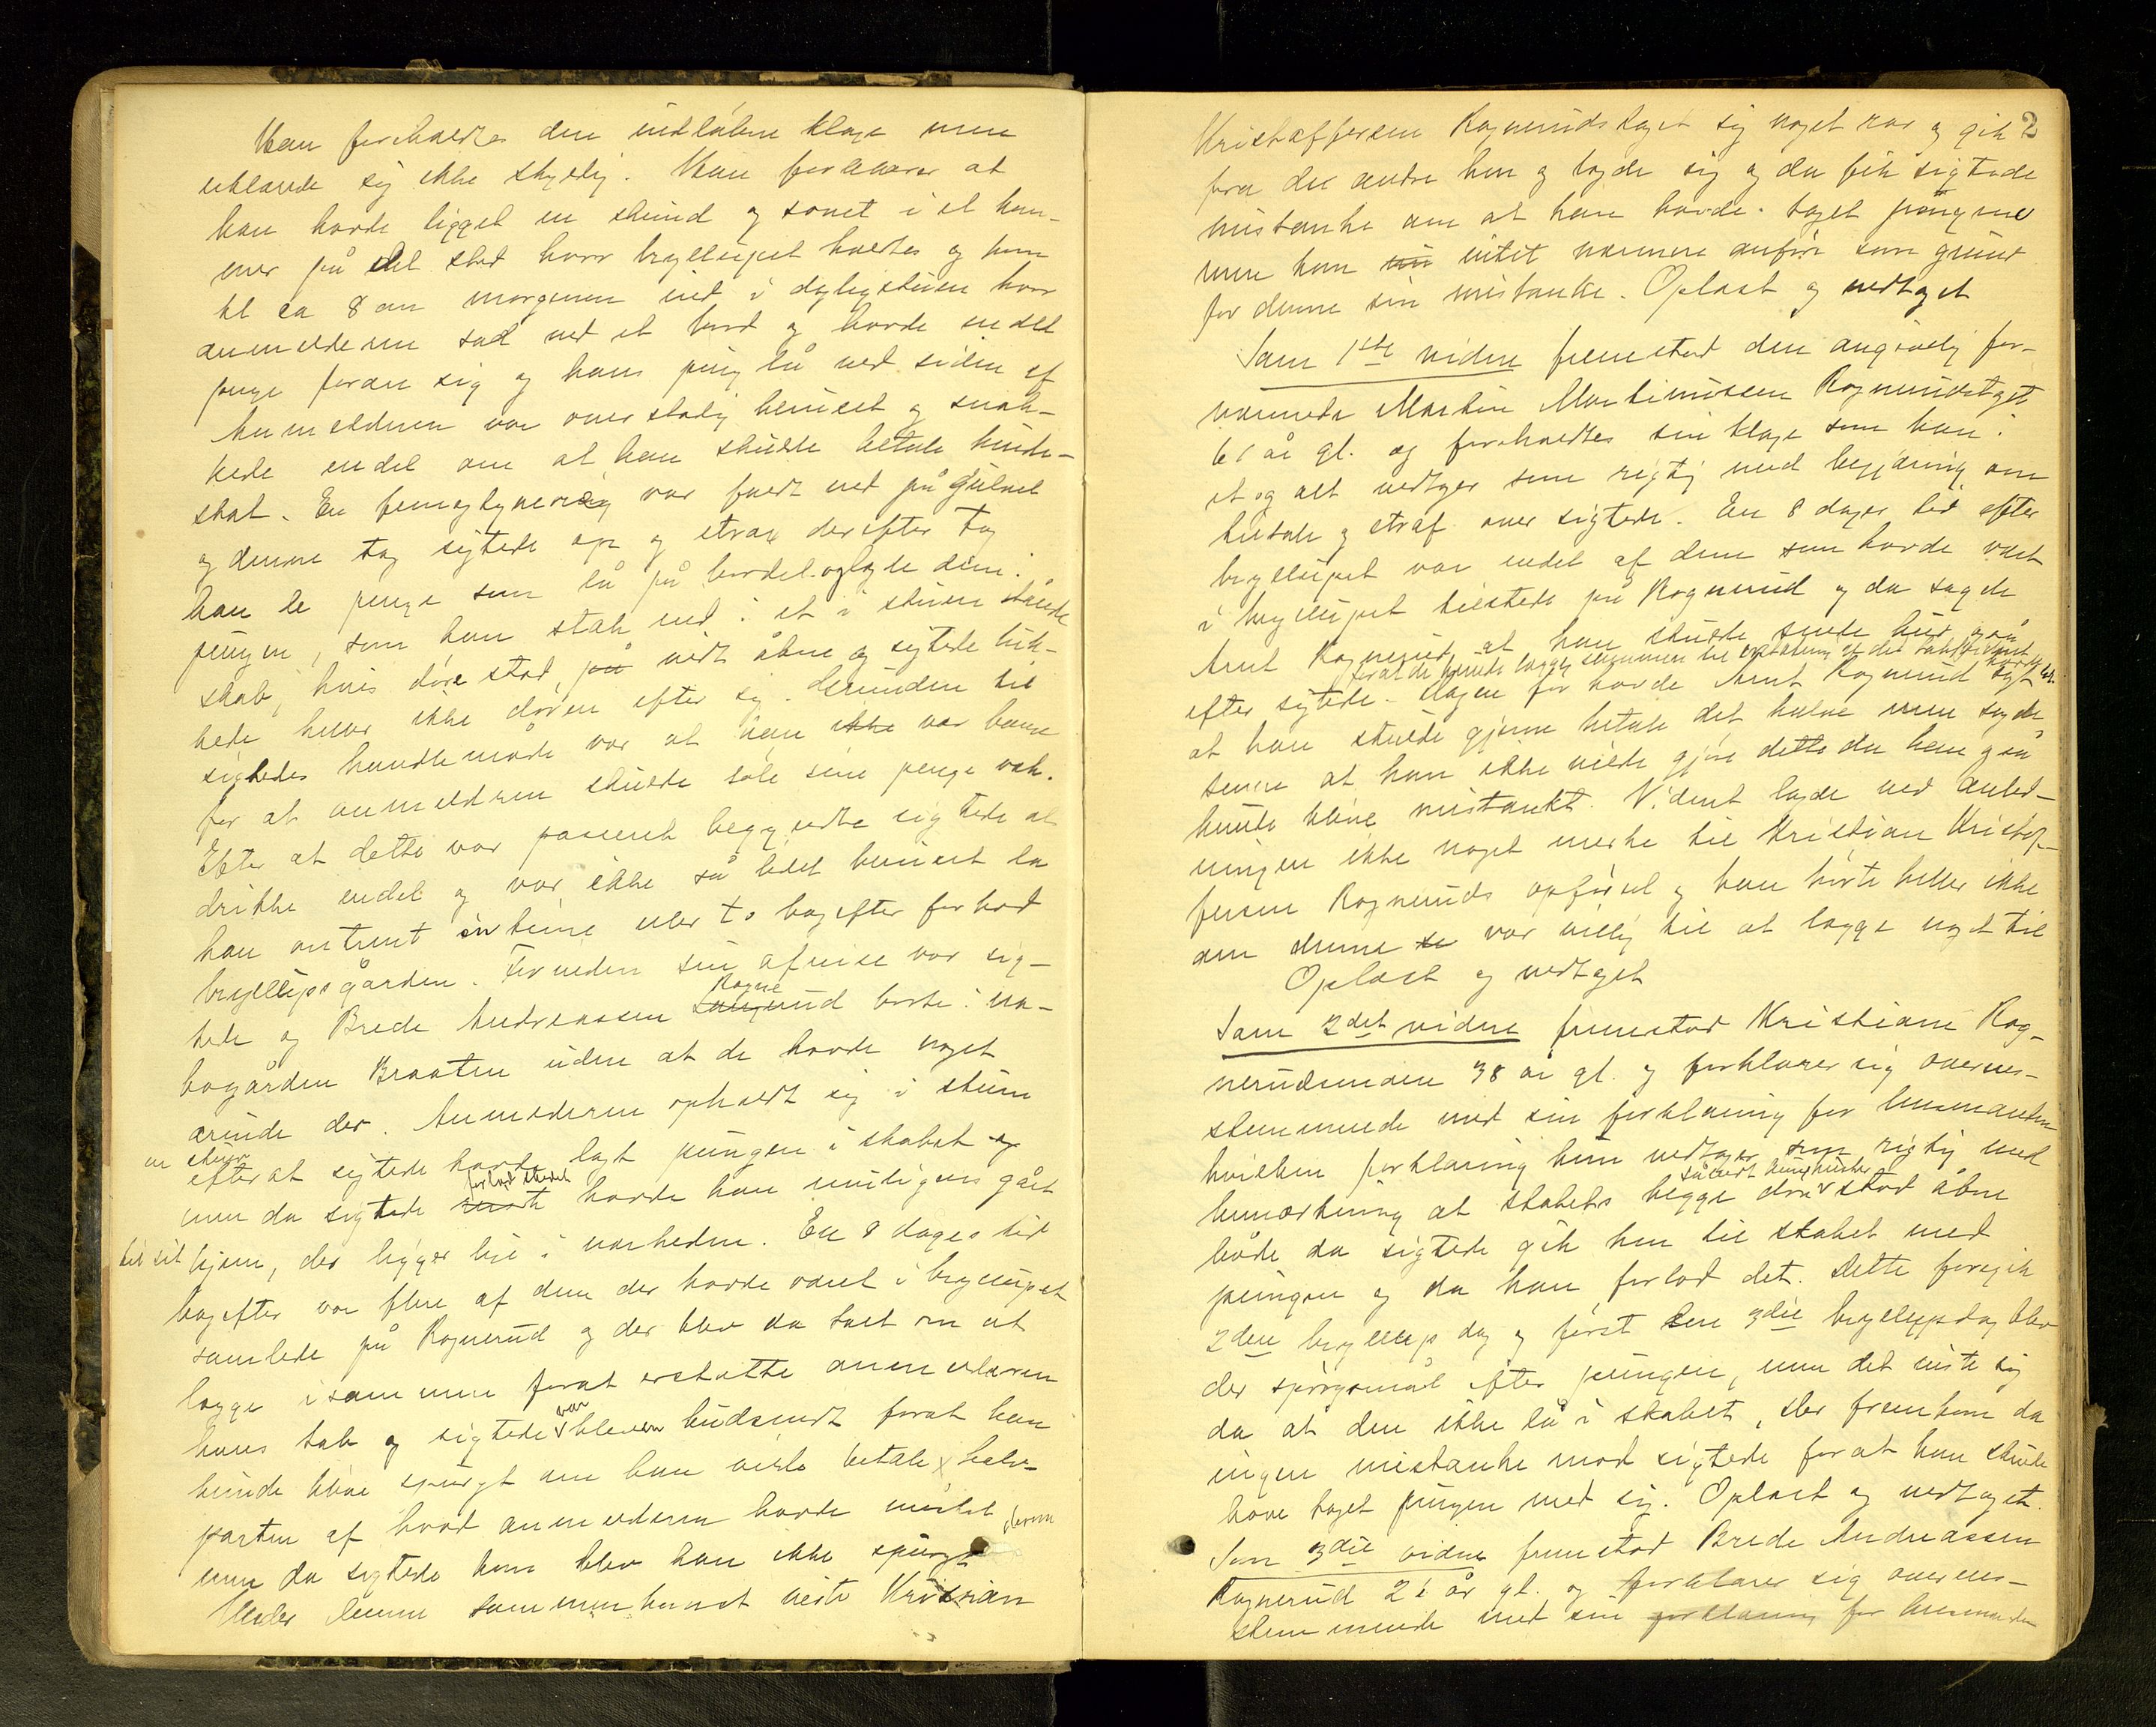 Han foreholdtes den indløbne klage men
erklærede sig ikke skyldig. Han forklarer at
han havde ligget en stund og sovet i et kam-
mer på det sted hvor bryllupet holdtes og kom
kl ca 8 om morgenen ind i dagligstuen hvor
anmelderen sad ved et bord og havde endel
penge foran sig og hans pung lå ved siden af
Anmelderen var overstadig beruset og snak-
kede endel om at han skulde betale hunde-
skat. En femogtyveøring var faldt ned på gulvet
og denne tog sigtede op og strax derefter tog
han de penge som lå på bordet og lagde dem i
pungen, som han stak ind i et i stuen stående
skab, hvis døre stod på vidt åbne og sigtede luk-
kede heller ikke døren efter sig. Grunden til
sigtedes handlemåde var at han ikke var bange
for at anmelderen skulde søle sine penge væk.
Efter at dette var passeret begyndte sigtede at
drikke endel og var ikke så lidet beruset da
han omtrent en time eller to bagefter forlod
bryllupsgården. Forinden sin afreise var sig-
Rogne
tede og Brede Andreassen Langerud borte i na-
bogården Braaten uden at de havde noget
ærinde der. Anmelderen opholdt sig i stuen
en stund
efter at sigtede havde lagt pungen i skabet og
forlod stedet
men da sigtede reiste havde han muligens gået
til sit hjem, der ligger lige i nærheden. En 8 dages tid
bagefter var flere af dem der havde været i bryllupet
samlede på Rognerud og der blev da talt om at
lægge isammen forat erstatte anmelderen
var
hans tab og sigtede bleven budsendt forat han
kunde blive spurgt om han vilde betale halv-
parten af hvad anmelderen havde mistet
men da sigtede kom blev han ikke spurgt derom
Under denne sammenkomst reiste Kristian
2
Kristoffersen Rognerud taget sig noget rar og gik
fra de andre hen og lagde sig og da fik sigtede
mistanke om at han havde taget pungen
men kan nu intet nærmere anføre som grund
for denne sin mistanke. Oplæst og vedtaget
Som 1ste vidne fremstod den angivelig for-
nærmede Martin Martinussen Rognerudstaget
61 år gl. og foreholdtes sin klage som han i
et og alt vedtager som rigtig med begjæring om
tiltale og straf over sigtede. En 8 dages tid efter
bryllupet var endel af dem som havde været
i bryllupet tilstede på Rognerud og da sagde
Arnt Rognerud at han skulde sende bud også
forat de kunde lægge sammen til erstatning af det tab vidnet havde lidt
efter sigtede. Dagen før havde Arnt Rognerud sagt
at han skulde gjerne betale det halve men sagde
senere at han ikke vilde gjøre dette da han også
kunde blive mistænkt. Vidnet lagde ved anled-
ningen ikke noget merke til Kristian Kristof-
fersen Rogneruds opførsel og han hørte heller ikke
om denne se var villig til at lægge noget til
Oplæst og vedtaget
Som 2det vidne fremstod Kristiane Rog-
nerudsmoen 38 år gl. og forklarer sig overens-
stemmende med sin forklaring for lensmanden
hvilken forklaring hun vedtager som rigtig med
såvidt hun husker
bemærkning at skabets begge døre stod åbne
både da sigtede gik hen til skabet med
pungen og da han forlod det. Dette foregik
2den bryllups dag og først den 3die bryllupsdag blev
der spørgsmål efter pungen, men det viste sig
da at den ikke lå i skabet, der fremkom da
ingen mistanke mod sigtede for at han skulde
have taget pungen med sig. Oplæst og vedtaget.
Som 3die vidne fremstod Brede Andreassen
Rognerud 21 år gl. og forklarer sig overens-
stemmende med sin forklaring for lensmanden